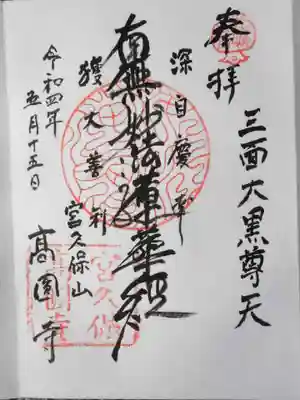 三面大黒尊天
奉拝
深自慶幸
南無妙法蓮華経
獲大善利
宮久保山
高圓寺
令和四年
五月十五日